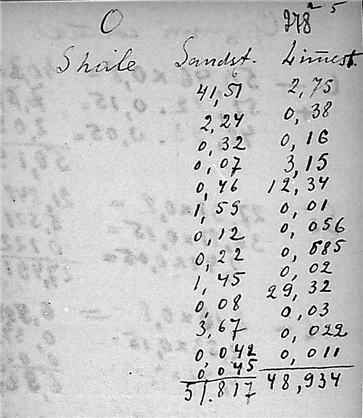 O
Shale Sandst. Limest.
41,51 2,75
2,24 0,38
0,32 0,16
0,07 3,15
0,46 12,34
1,59 0,01
0,12 0,056
0,22 0,685
1,45 0,02
0,08 29,32
3,67 0,03
0,042 0,022
0,045 0,011
51.817 48,934